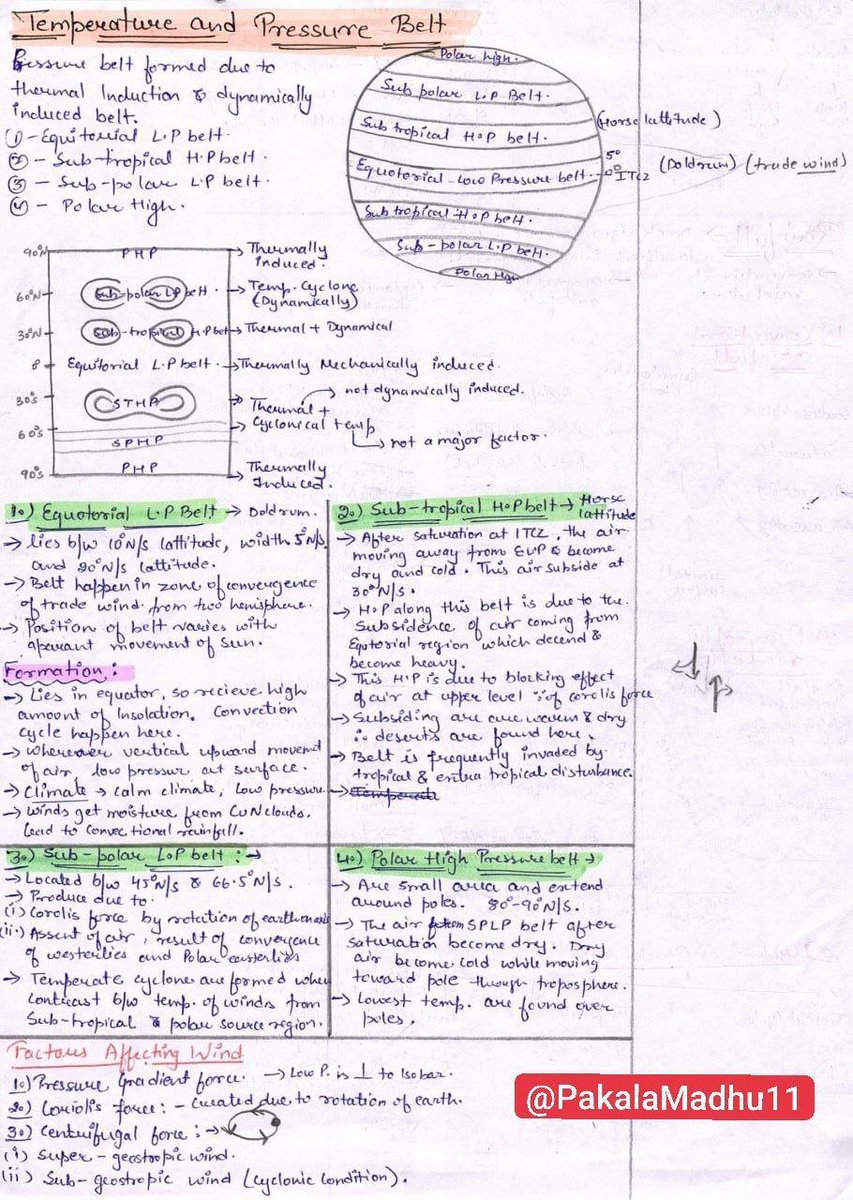 Temperature and Pressure Belt
Pressure belt formed due to
thermal Induction & dynamically
induced belt.
① - Equitorial L.P belt.
② - Sub-tropical H.P belt.
③ - Sub-polar L.P belt.
④ - Polar High.
Polar high.
Sub polar L.P Belt.
Sub tropical H.P belt.
(Horse lattitude)
Equotorial-Low Pressure belt.
5°
0° ITCZ
(Doldrum) (trade wind)
Sub tropical H.P belt.
Sub-polar L.P belt.
Polar High
90°N PHP → Thermally
Induced.
60°N Sub-polar LP belt. → Temp. Cyclone
(Dynamically)
30°N Sub-tropical H.P belt → Thermal + Dynamical
0 Equitorial L.P belt. → Thermally Mechanically induced.
30°S STHP → Thermal +
→ not dynamically induced.
60°S → Cyclonical temp
→ not a major factor.
SPHP
90°S PHP → Thermally
Induced.
1.) Equotorial L.P Belt → Doldrum.
→ Lies b/w 10°N/S lattitude, width 5°N/S.
and 20°N/S lattitude.
→ Belt happen in zone of convergence
of trade wind from two hemisphere.
→ Position of belt varies with
aparant movement of sun.
Formation:
→ Lies in equator, so recieve high
amount of Insolation. Convection
cycle happen here.
→ wherever vertical upward movemnt
of air, low pressure at surface.
→ Climate → calm climate, low pressure
→ winds get moisture from CuN clouds.
Lead to convectional rainfall.
2.) Sub-tropical H.P belt → Horse
lattitude
→ After saturation at ITCZ, the air
moving away from & become
dry and cold. This air subside at
30°N/S.
→ H.P along this belt is due to the
subsidence of air coming from
Equtorial region which decend &
become heavy.
→ This H.P is due to blocking effect
of air at upper level ∵ of corolis force
→ Subsiding are are warm & dry
∴ deserts are found here.
→ Belt is frequently invaded by
tropical & extra tropical disturbance.
→ Temperate
3.) Sub-polar L.P belt: →
→ Located b/w 45°N/S & 66.5°N/S.
→ Produce due to.
(i) Corolis force by rotation of earth on axis
(ii.) Assent of air, result of convergence
of westerlies and Polar easterlies
→ Temperate cyclone are formed when
contrast b/w temp. of winds from
Sub-tropical & polar source region.
4.) Polar High Pressure belt →
→ Are small area and extend
around poles. 80°-90°N/S.
→ The air from SPLP belt after
saturation become dry. Dry
air become cold while moving
toward pole through troposphere.
→ Lowest temp. are found over
poles.
Factors Affecting Wind
1.) Pressure Gradient force. → Low P. is ⊥ to Isobar.
2.) Coriolis force: - Created due to rotation of earth.
3.) Centrifugal force: →
(i) Super-geostropic wind.
(ii) Sub-geostropic wind (cyclonic condition).
@PakalaMadhu11